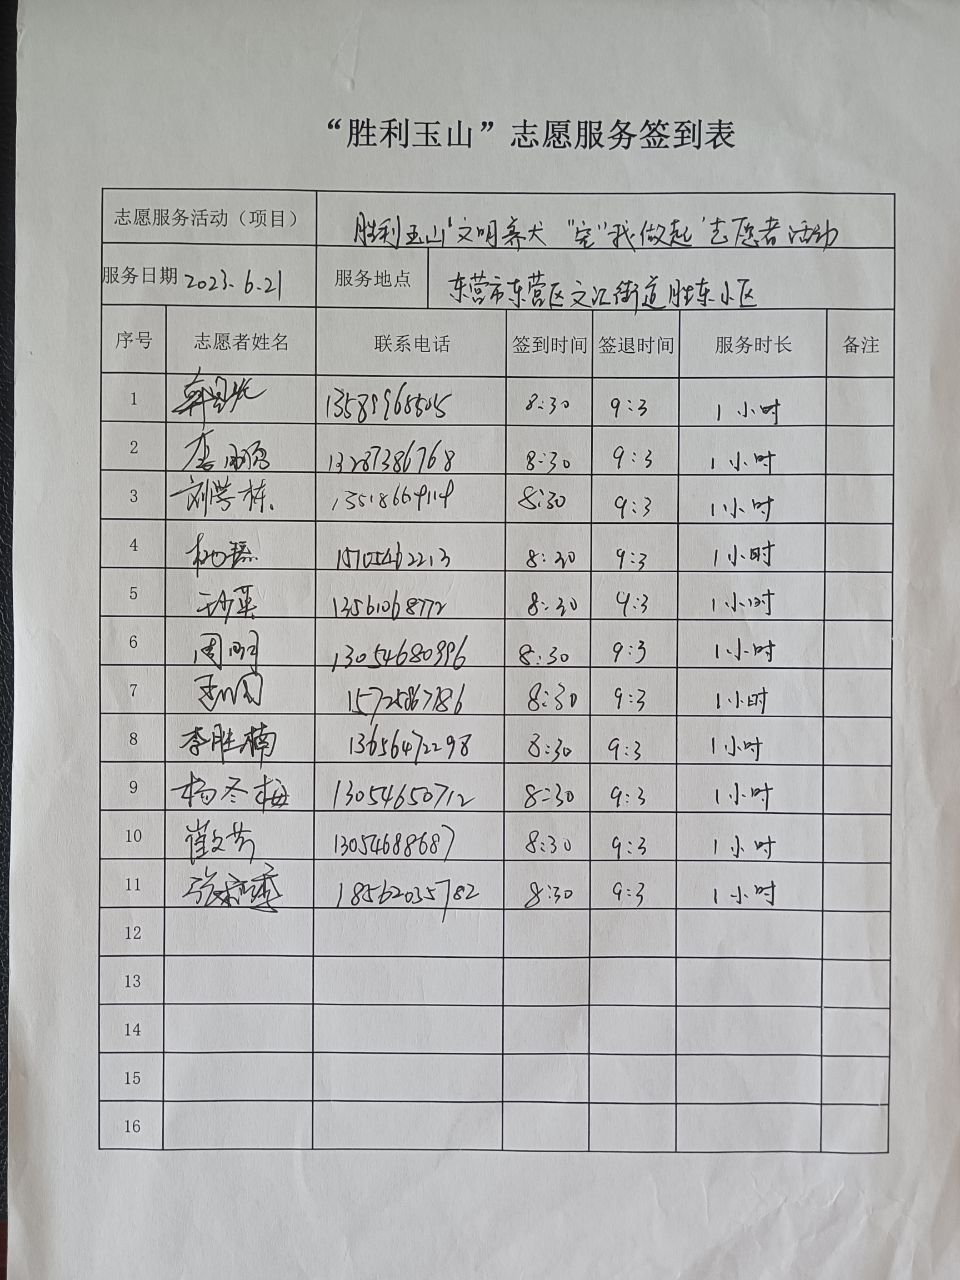 “胜利玉山”志愿服务签到表
志愿服务活动（项目） 胜利玉山“文明养犬 “宠”我做起”志愿者活动
服务日期 2023.6.21 服务地点 东营市东营区文汇街道胜东小区
序号 志愿者姓名 联系电话 签到时间 签退时间 服务时长 备注
1 13589968505 8:30 9:3 1小时
2 13287386768 8:30 9:3 1小时
3 刘学栋 8:30 9:3 1小时
4 15705462213 8:30 9:3 1小时
5 13561068772 8:30 9:3 1小时
6 周明 13054680996 8:30 9:3 1小时
7 15725867186 8:30 9:3 1小时
8 李胜楠 13656472298 8:30 9:3 1小时
9 杨冬梅 13054650712 8:30 9:3 1小时
10 崔文芳 13054688687 8:30 9:3 1小时
11 18562035782 8:30 9:3 1小时
12
13
14
15
16